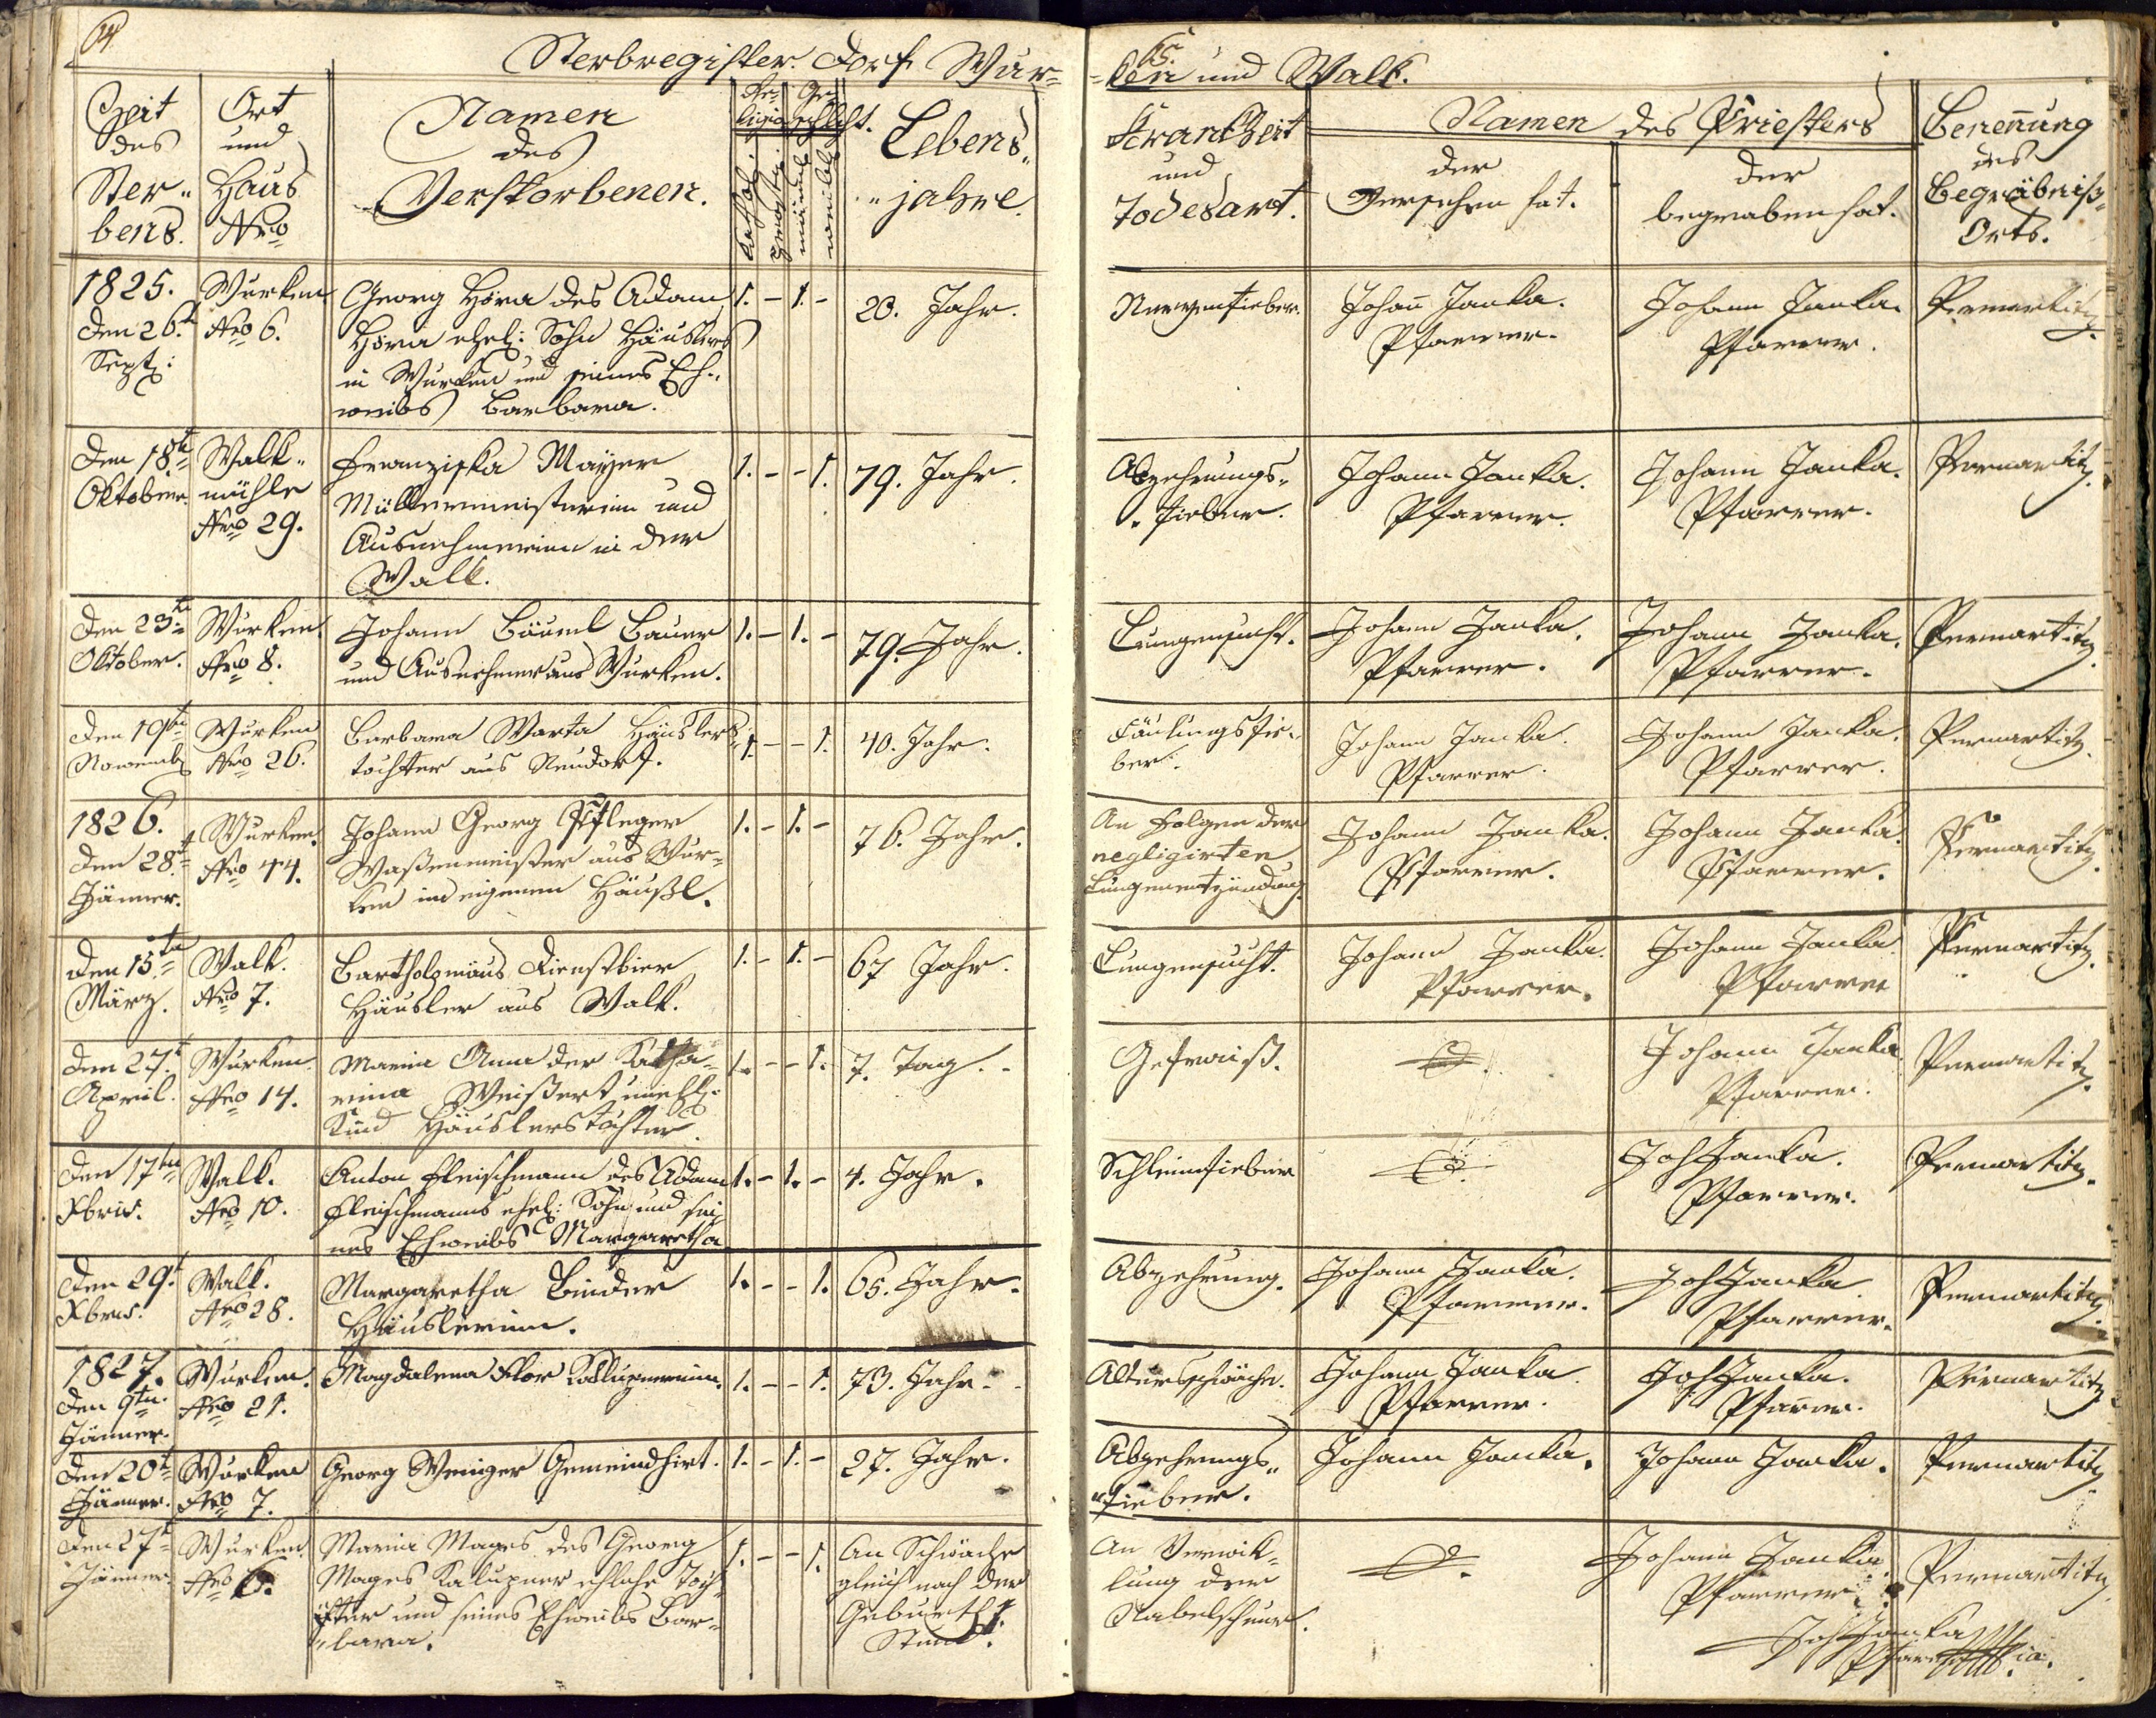 64.
Sterbregister. Dorf Wur-
Zeit
des
Ster-
bens.
Ort
und
Haus
Nro
Namen
des
Verstorbenen.
Re-
ligion
Kathol.
Ge-
schlecht.
männl.
weibl.
Lebens-
jahre.
1825.
den 26.t
Sept:
Wurken
Nro 6.
Georg Hora des Adam
Hora ehel: Sohn Häuslers
in Wurken und seines Eh-
weibs Barbara.
1. - 1. -
23. Jahr.
den 18.t
Oktober.
Walk-
mühle
Nro 29.
Franziska Mayer
Müllermeisterinn und
Ausnehmerinn in der
Walk.
1. - - 1.
79. Jahr.
den 23.tn
Oktober.
Wurken.
Nro 8.
Johann Bäuml Bauer
und Ausnehmer aus Wurken.
1. - 1. -
79. Jahr.
den 19tn
Novemb
Wurken
Nro 26.
Barbara Warta Häuslers
tochter aus Neudorf.
1. - - 1.
40. Jahr.
1826.
den 28.t
Jänner.
Wurken.
Nro 44.
Johann Georg Pfleger
Waßenmeister aus Wur-
ken im eigenen Häußl.
1. - 1. -
76. Jahr.
den 15tn
März.
Walk.
Nro 7.
Bartholomäus Dienstbier
Häusler aus Walk.
1. - 1. -
67 Jahr.
den 27.t
April.
Wurken
Nro 14.
Maria Anna der Katha-
rina Weißert unehl:
Kind Häuslerstochter.
1. - - 1.
7. Tag.
den 17tn
Xbris.
Walk.
Nro 10.
Anton Fleischmann des Adam
Fleischmanns ehel: Sohn und sei-
nes Eheweibs Margaretha
1. - 1. -
4. Jahr.
den 29.t
Xbris.
Walk.
Nro 28.
Margaretha Binder
Häuslerinn.
1. - - 1.
65. Jahr.
1827.
den 9tn
Jänner.
Wurken.
Nro 21.
Magdalena Flor Kalluperinn.
1. - - 1.
73. Jahr.
den 20t
Jänner.
Wurken
Nro 7.
Georg Weniger Gemeindhirt.
1. - 1. -
27. Jahr.
den 27t
Jänner.
Wurken.
Nro 6.
Maria Mages des Georg
Mages Kalupner ehliche Toch-
ter und seines Eheweibs Bar-
bara.
1. - - 1.
An Schwäche
gleich nach der
Geburth 1.
Stund.
65.
-ken und Walk.
Krankheit
und
Todesart.
Namen des Priesters
der
Versehen hat.
der
begraben hat.
Benennung
des
Begräbniß-
Orts.
Nervenfieber.
Johann Janka.
Pfarrer.
Johann Janka.
Pfarrer.
Pernartitz.
Abzehrungs-
fieber.
Johann Janka.
Pfarrer.
Johann Janka.
Pfarrer.
Pernartitz.
Lungensucht.
Johann Janka.
Pfarrer.
Johann Janka.
Pfarrer.
Pernartitz.
Fäulungsfie-
ber.
Johann Janka.
Pfarrer.
Johann Janka.
Pfarrer.
Pernartitz.
An Folgen der
negligirten
Lungenentzündung.
Johann Janka.
Pfarrer.
Johann Janka.
Pfarrer.
Pernartitz.
Lungensucht.
Johann Janka.
Pfarrer.
Johann Janka
Pfarrer
Pernartitz.
Gefraiß.
Johann Janka
Pfarrer.
Pernartitz.
Schleimfieber
Joh Janka.
Pfarrer.
Pernartitz.
Abzehrung.
Johann Janka.
Pfarrer.
Joh Janka
Pfarrer.
Pernartitz.
Altersschwäche.
Johann Janka.
Pfarrer.
Joh Janka.
Pfarrer.
Pernartitz
Abzehrungs-
fieber.
Johann Janka.
Johann Janka.
Pernartitz.
An Verwik-
lung der
Nabelschnur.
Johann Janka
Pfarrer.
Pernartitz.
Joh Janka